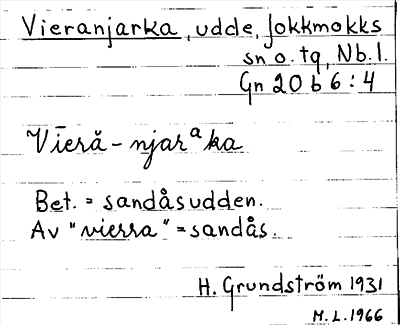 Vieranjarka, udde, Jokkmokks
sn o. tg, Nb. l.
Gn 20 b 6:4
Vīerå-njarᵃka
Bet. = sandåsudden.
Av "vierra" = sandås.
H. Grundström 1931
M. L. 1966